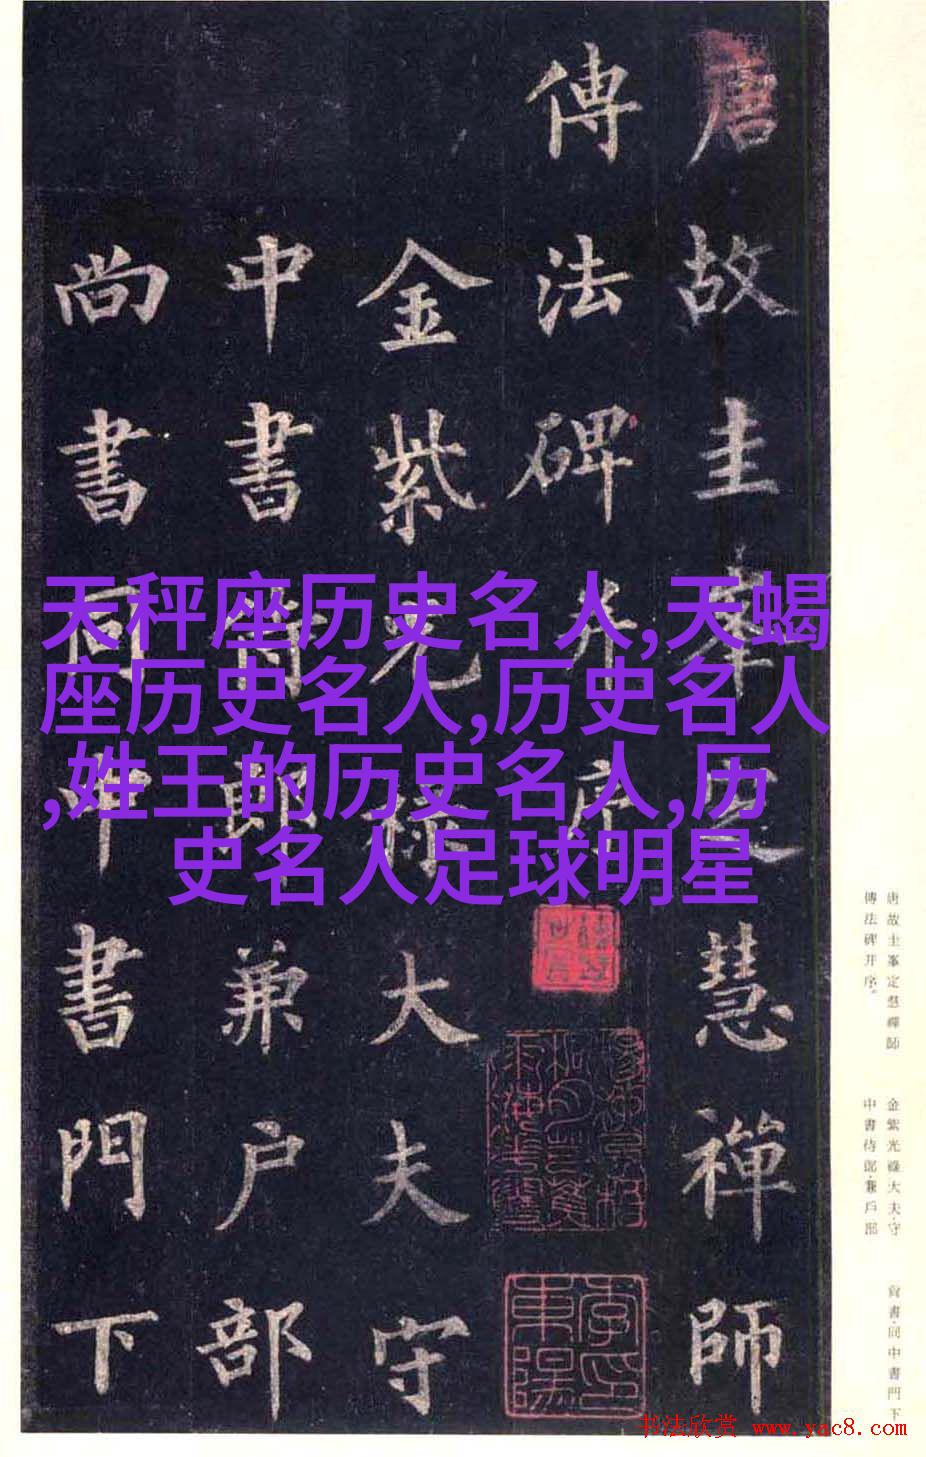 唐故圭峯定慧禪師
傳法碑并序
金紫光祿大夫守
中書侍郎兼户部
尚書同中書門下
天秤座历史名人,天蝎
座历史名人,历史名人
,姓王的历史名人,历
史名人足球明星
唐故圭峯定慧禪師
傳法碑并序。
金紫光祿大夫守
中書侍郎兼戶部
尙書同中書門下
书法欣赏 www.yac8.com